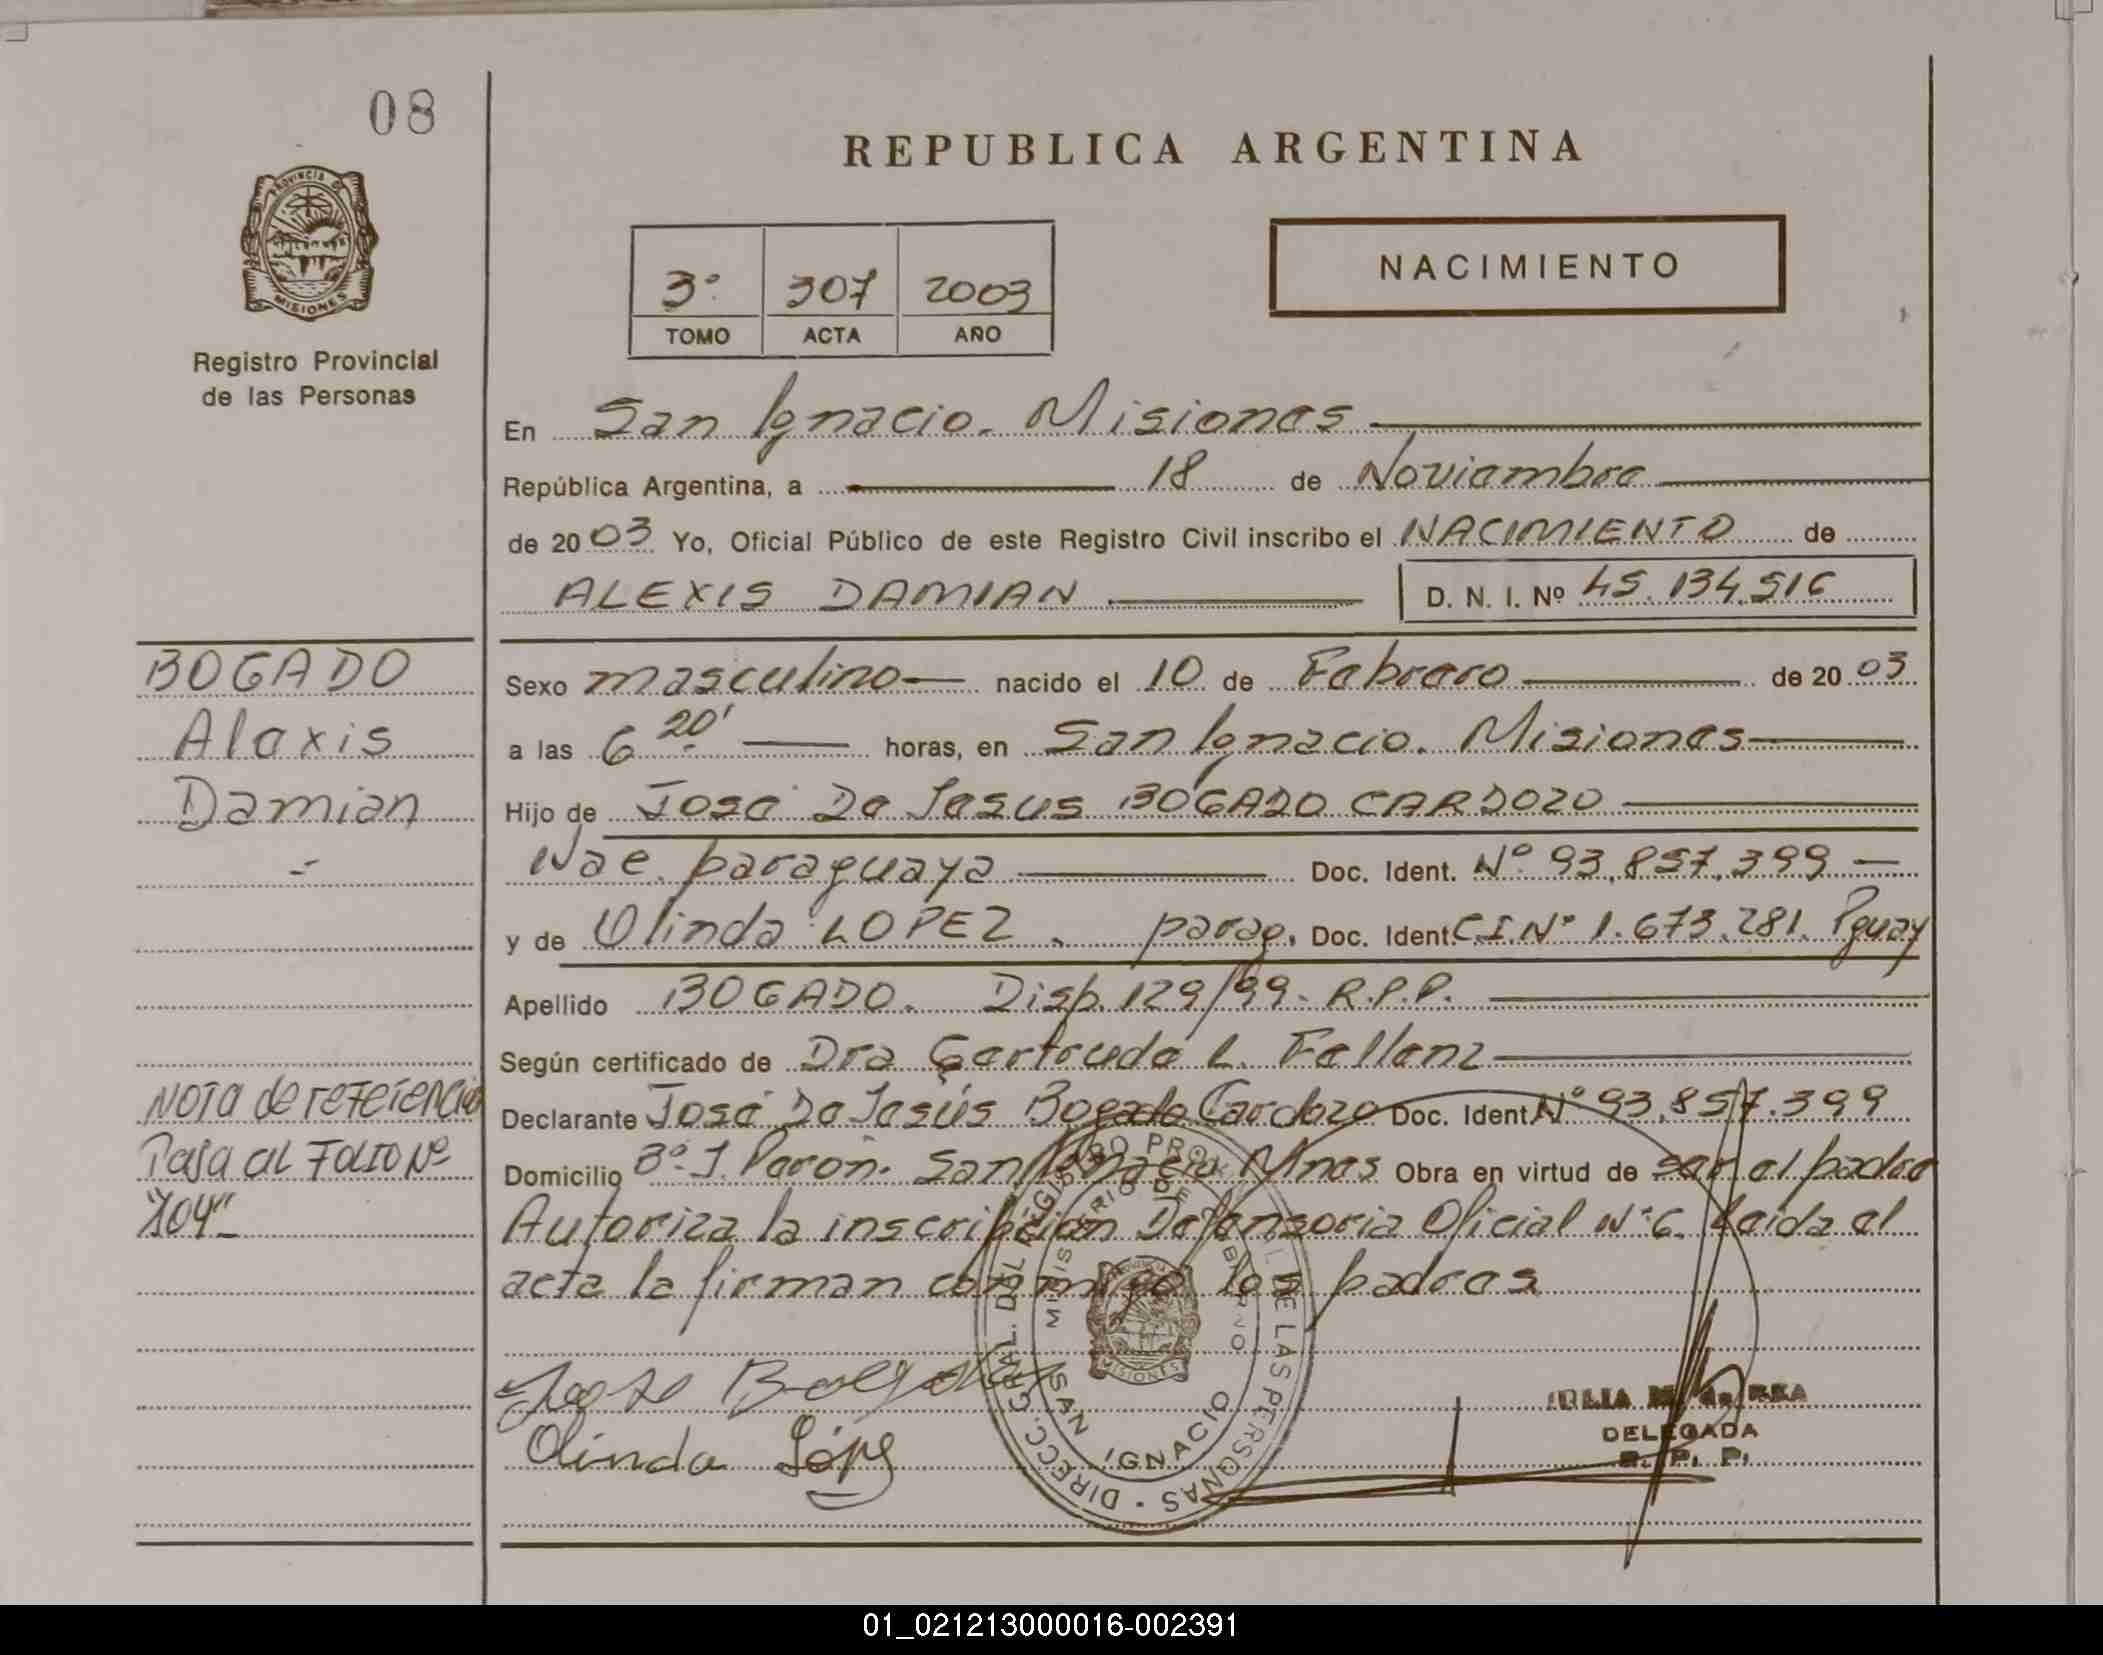 08
REPUBLICA ARGENTINA
PROVINCIA DE
MISIONES
Registro Provincial
de las Personas
3º 307 2003
TOMO ACTA AÑO
NACIMIENTO
En San Ignacio. Misiones
República Argentina, a 18 de Noviembre
de 2003 Yo, Oficial Público de este Registro Civil inscribo el NACIMIENTO de
ALEXIS DAMIAN D. N. I. Nº 45.134.516
BOGADO
Alexis
Damian
Sexo masculino nacido el 10 de Febrero de 2003
a las 6 20' horas, en San Ignacio. Misiones
Hijo de José De Jesus BOGADO CARDOZO
Nac. paraguaya Doc. Ident. Nº 93.857.399
y de Olinda LOPEZ. parag. Doc. Ident. C.I. Nº 1.673.281. Pguay
Apellido BOGADO. Disp. 129/99. R.P.P.
Según certificado de Dra Gertrude L. Fellenz
Declarante José De Jesús Bogado Cardozo Doc. Ident. Nº 93.857.399
Domicilio Bº J. Peron. San Ignacio Mnes Obra en virtud de ser el padre
Autoriza la inscripcion Defensoria Oficial Nº 6. Leida el
acta la firman conmigo los padres
Nota de referencia
Pasa al Folio Nº
"104"
Jose Bogado
Olinda López
DIRECC. GRAL. DEL REGISTRO PROVINCIAL DE LAS PERSONAS
MINISTERIO DE GOBIERNO
SAN IGNACIO
MISIONES
DELEGADA
R. P. P.
01_021213000016-002391